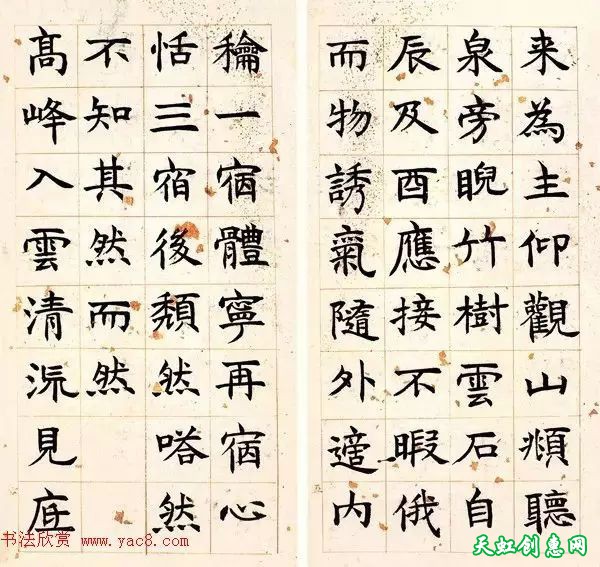 来為主仰觀山頫聽
泉旁睨竹樹雲石自
辰及酉應接不暇俄
而物誘氣隨外適内
龢一宿體寧再宿心
恬三宿後頽然嗒然
不知其然而然
髙峰入雲清流見底
书法欣赏 www.yac8.com
天虹创意网